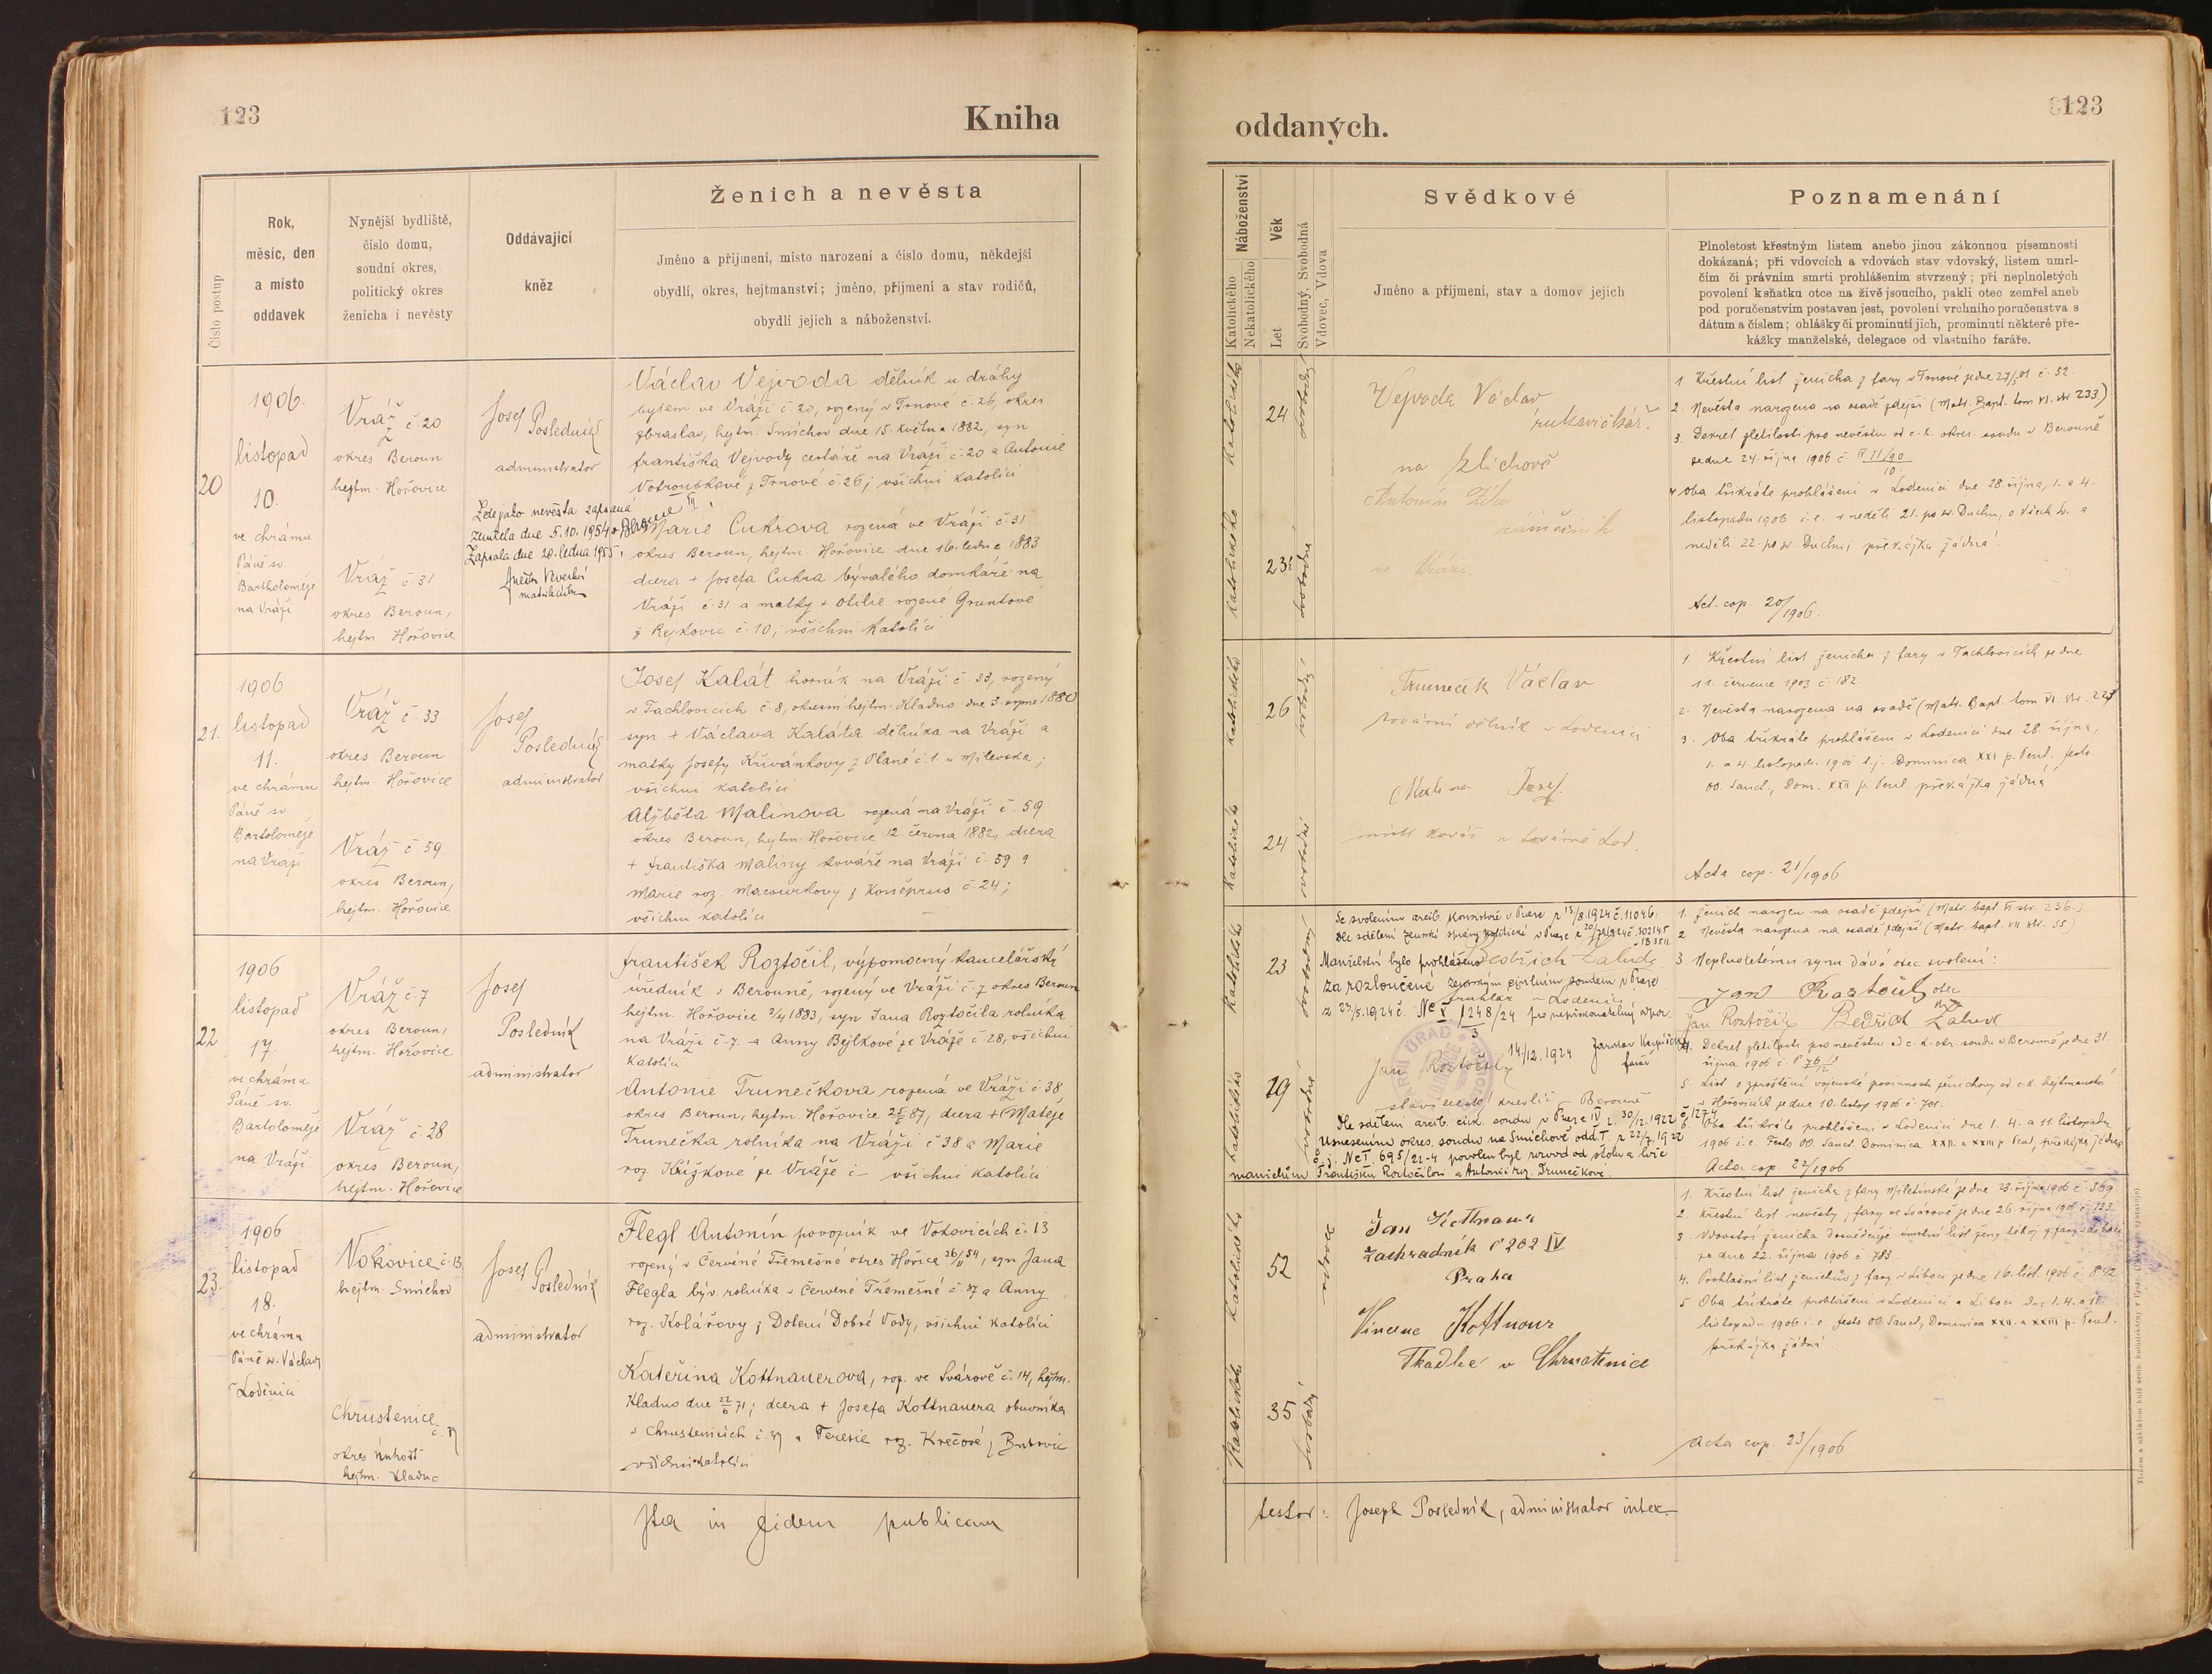 123
Kniha
Číslo postup
Rok,
měsíc, den
a místo
oddavek
Nynější bydliště,
číslo domu,
soudní okres,
politický okres
ženicha i nevěsty
Oddávající
kněz
Ženich a nevěsta
Jméno a příjmení, místo narození a číslo domu, někdejší
obydlí, okres, hejtmanství; jméno, příjmení a stav rodičů,
obydlí jejich a náboženství.
20
1906.
listopad
10.
ve chrámu
Páně sv.
Bartholoměje
na Vráži
Vráž č. 20
okres Beroun
hejtm. Hořovice
Vráž č. 31
okres Beroun,
hejtm Hořovice
Josef
Posledník
administrator
Zde jako nevěsta zapsaná
zemřela dne 5.10.1954
Zapsala dne 20. ledna 1955.
matrikářka
Václav Vejvoda dělník u dráhy
bytem ve Vráži č. 20, rozený v Trnové č. 26, okres
Zbraslav, hejtm. Smíchov dne 15. května 1882, syn
františka Vejvody cestáře na Vráži č. 20 a Antonie
z Trnové č. 26; všichni katolíci
Marie Cukrova rozená ve Vráži č. 31
okres Beroun, hejtm. Hořovice dne 16. ledna 1883
dcera + Josefa Cukra bývalého domkáře na
Vráži č. 31 a matky + Otilie rozené Gruntové
z Rejkovic č. 10; všichni katolíci
21.
1906
listopad
11.
ve chrámu
Páně sv
Bartoloměje
na Vráži
Vráž č. 33
okres Beroun
hejtm. Hořovice
Vráž č. 59.
okres Beroun,
hejtm. Hořovice
Josef
Posledník
administrator
Josef Kalát horník na Vráži č. 33, rozený
v Tachlovicích č. 8, okresní hejtm. Kladno dne 3. srpna 1880
syn + Václava Kaláta dělníka na Vráži a
matky Josefy Křivánkovy z Plané č. 1. u Milevska;
všichni katolíci
Alžběta Malinova rozená na Vráži č. 59
okres Beroun, hejtm. Hořovice 12. června 1882, dcera
+ františka Maliny kováře na Vráži č. 59 a
Marie roz. Macourkovy z Koněprus č. 24;
všichni katolíci
22
1906
listopad
17.
ve chrámu
Páně sv.
Bartoloměje
na Vráži
Vráž č. 7
okres Beroun,
hejtm. Hořovice
Vráž č 38
okres Beroun,
hejtm. Hořovice
Josef
Posledník
administrator
František Roztočil, výpomocný kancelářský
úředník v Berouně, rozený ve Vráži č. 7 okres Beroun
hejtm. Hořovice 1883, syn Jana Roztočila rolníka
na Vráži č. 7. a Anny Bejlkové ze Vráže č. 28, všichni
katolíci
Antonie Trunečkova rozená ve Vráži č 38
okres Beroun, hejtm. Hořovice 87, dcera + Matěje
Trunečka rolníka na Vráži č 38 a Marie
roz. Křížkové ze Vráže č – všichni katolíci
23.
1906
listopad
18.
ve chrámu
Páně sv. Václava
v Loděnici
Vokovice č. 13
hejtm. Smíchov
Chrustenice
okres Unhošť
hejtm. Kladno
Josef
Posledník
administrator
Flegl Antonín povozník ve Vokovicích č. 13
rozený v Červené Třemešné okres Hořice 26/II 54, syn Jana
Flegla býv. rolníka v Červené Třemešné č. 37 a Anny
roz. Kolářovy z Dolení Dobré Vody, všichni katolíci
Kateřina Kottnauerova, roz. ve Svárově č. 14, hejtm.
Kladno dne 22/6 71; dcera + Josefa Kottnauera obuvníka
v Chrustenicích a Teresie roz. Krečové z Bubovic
všichni katolíci
Ita in fidem publicam
123
oddaných.
Náboženství
Katolického
Nekatolického
Věk
Let
Svobodný, Svobodná
Vdovec, Vdova
Svědkové
Jméno a příjmení, stav a domov jejich
Poznamenání
Plnoletost křestným listem anebo jinou zákonnou písemností
dokázaná; při vdovcích a vdovách stav vdovský, listem umrl-
čím či právním smrti prohlášením stvrzený; při neplnoletých
povolení k sňatku otce na živě jsoucího, pakli otec zemřel aneb
pod poručenstvím postaven jest, povolení vrchního poručenstva s
dátum a číslem; ohlášky či prominutí jich, prominutí některé pře-
kážky manželské, delegace od vlastního faráře.
Katolického
Katolického
24
23½
svobodný
svobodná
Vejvoda Václav
rukavičkář
na Zlíchově
Antonín
ve Vráži
1. Křestní list ženicha z fary v Trnové ze dne 27/5 01 č. 52.
2. Nevěsta narozena na osadě zdejší (Matr. Bapt. tom VI. str 233)
3. Dekret zletilosti pro nevěstu od c. k. okres. soudu v Berouně
ze dne 24. října 1906 č. P II/90
10
4. Oba třikráte prohlášeni v Lodenici dne 28. října, 1. a 4.
listopadu 1906 i. e. v neděli 21. po sv. Duchu, o Všech sv. a
neděli 22. po sv. Duchu; překážka žádná.
Act. cop. 20/1906.
Katolického
Katolického
26
24
svobodný
svobodná
Truneček Václav
tovární dělník v Lodenici
Malina Josef
mistr kovář v továrně Lod.
1. Křestní list ženicha z fary v Tachlovicích ze dne
11. července 1903 č. 182.
2. Nevěsta narozena na osadě (Matr. Bapt. tom VI. str. 227
3. Oba třikráte prohlášeni v Lodenici dne 28. října,
1. a 4. listopadu 1906 t. j. Dominica XXI p. Pent., festo
OO. Sanct., Dom. XXII p. Pent. překážka žádná
Acta cop. 21/1906
Katolického
Katolického
23
19
svobodný
svobodná
Se svolením arcib. konsistoře v Praze z 13/8.1924 č. 11046.
Dle sdělení zemské správy politické v Praze
Manželství bylo prohlášeno
za rozloučené zemským civilním soudem v Praze
truhlář – Lodenice
z 23/5.1924 č. Nc X 1248/24 pro nepřekonatelný odpor.
3
14./12. 1924
farář
Jan Roztočil
stavitelský kreslič – Beroun
Dle sdělení arcib. círk. soudu v Praze IV z. 30/12.1922 č. 1274
Usnesením okres. soudu na Smíchově odd. I. z 22/7. 1922
č. j. Nc I. 695/21-4 povolen byl rozvod od stolu a lože
manželům Františku Roztočilovi a Antonii roz. Trunečkové.
1. Ženich narozen na osadě zdejší (Matr. bapt. VI str. 236.)
2 Nevěsta narozena na osadě zdejší (Matr. bapt. VII str. 55)
3. Neplnoletému synu dává otec svolení:
Jan Roztočil otec
Jan Roztočil Bedřich
4. Dekret zletilosti pro nevěstu od c. k. okr. soudu v Berouně ze dne 31.
října 1906
5. List o zproštění vojenské povinnosti ženichovy od c.k. hejtmanství
v Hořovicích ze dne 10. listop 1906 č. 701.
6. Oba třikráte prohlášeni v Lodenici dne 1. 4. a 11. listopadu
1906 i. e. Festo OO. Sanct. Dominica XXII. a XXIII p. Pent, překážka žádná
Acta cop. 22/1906
Katolického
Katolického
52
35
vdovec
svobodná
Jan
Zachradník č 202 IV
Praha
Vincenc Kottnour
Tkadlec v Chrustenice
1. Křestní list ženicha z fary Miletínské ze dne 23. října 1906 č. 369
2. Křestní list nevěsty z fary ve Svárově ze dne 26 října 1906 č. 133.
3. Vdovství ženicha dosvědčuje úmrtní list ženy
ze dne 22. října 1906 č. 783.
4. Prohlašní list ženichův z fary v Liboci ze dne 16. list. 1906 č. 842
5 Oba třikráte prohlášeni v Lodenici a Liboci dne 1. 4. a 11.
listopadu 1906 i. e. festo OO. Sanct, Dominica XXII. a XXIII p. Pent.
překážka žádná.
Acta cop. 23/1906
testor: Joseph Posledník, administrator interc